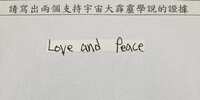 請寫出兩個支持宇宙大霹靂學說的證據
Love and Peace